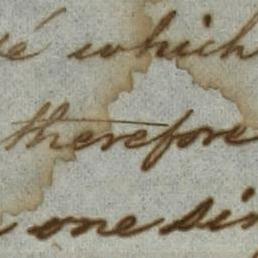 which
therefore
one